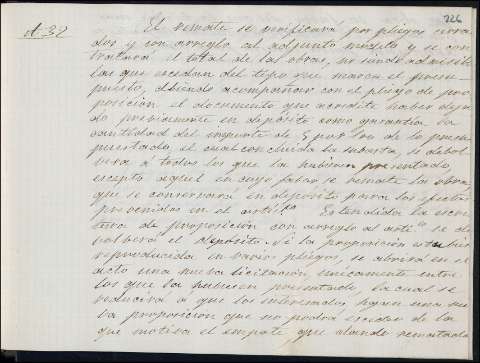 226
A 32
El remate se verificará por pliegos cerra
dos y con arreglo al adjunto modelo y se con
tratará el total de las obras, no siendo admisib
las que escedan del tipo que marca el presu
puesto, debiendo acompañar con el pliego de pro
posición el documento que acredite haber deja
do previamente en depósito como garantía la
cantidad del importe de 5 por 100 de lo presu
puestado, el cual concluida la subasta, se devol
verá á todos los que la hubiesen presentado
escepto aquel en cuyo favor se remate la obra,
que se conservará en depósito para los efectos
prevenidos en el artº Estendida la escri
tura de proposición con arreglo al artº se de
volverá el depósito. Si la proposición estubie
reproducida en varios pliegos, se abrirá en el
acto una nueva licitación, unicamente entre
los que la hubiesen presentado, la cual se
reducirá a que los interesados hagan una nue
va proposición que no podrá esceder de la
que motiva el empate, que dando rematada